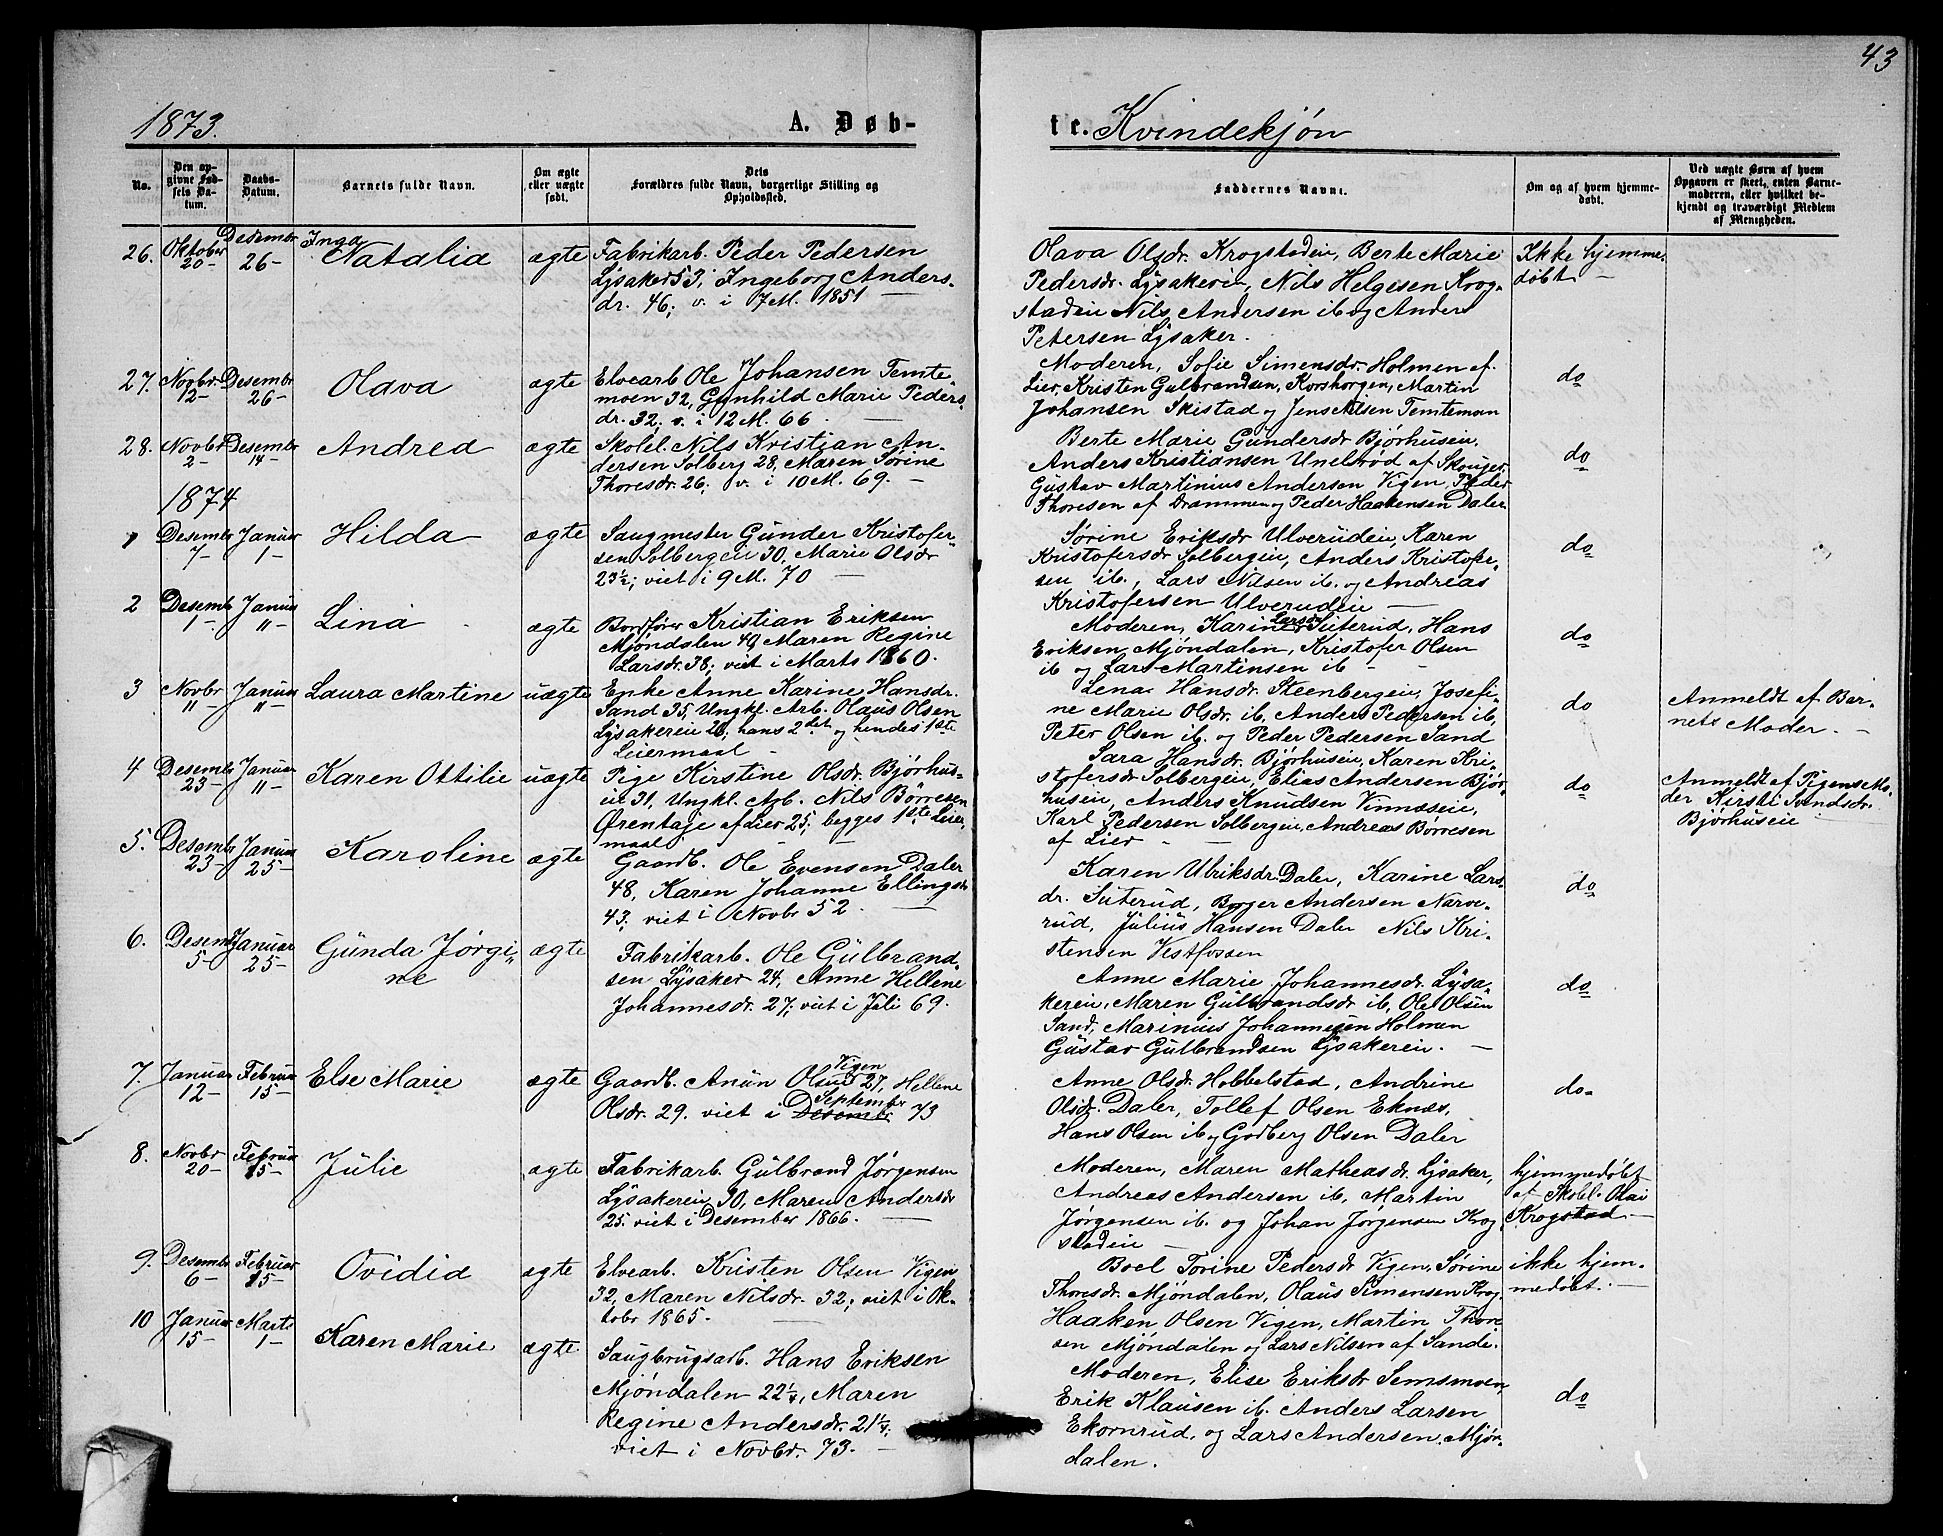 43
1873.
A. Døb-
te. Kvindekjøn
No.
Den op-
givne Fød-
sels Da-
tum.
Daabs-
Datum.
Barnets fulde Navn.
Om ægte
eller uægte
født.
Dets
Forældres fulde Navn, borgerlige Stilling og
Opholdssted.
Faddernes Navne.
Om og af hvem hjemme-
døbt.
Ved uægte Børn af hvem
Opgaven er skeet, enten Barne-
moderen, eller hvilket be-
kjendt og troværdigt Medlem
af Menigheden.
26. Oktober 20- Desembr 26- Inga Natalia ægte
Fabrikarb. Peder Pedersen
Lysaker 53, Ingeborg Anders-
dr. 46; v. i 7M. 1851 —
Olava Olsdr. Krogstadeie, Berte Marie
Pedersdr. Lysakerie, Nils Helgesen Krog-
stadeie Nils Andersen ib og Anders
Petersen Lysaker.
Ikke hjemme-
døbt —
27. Novbr. 12- Desembr 26- Olava ægte
Elvearb Ole Johansen Temte-
moen 32, Gunhild Marie Peders-
dr. 32; v. i 12 M. 66 —
Moderen, Sofie Simensdr. Holmen af
Lier, Kristen Gulbrandsen, Korshorgen, Martin
Johansen Skistad og Jens Nilsen Temteman
do
28. Novbr 2- Desembr 14- Andrea ægte
Skolel. Nils Kristian An-
dersen Solberg 28, Maren Sørine
Thoresdr. 26; v. i 10 M. 69. —
Berte Marie Gundersdr Bjørhuseie,
Anders Kristiansen Unelsrød af Skouger,
Gustav Martinius Andersen Vigen, Peder
Thoresen af Drammen og Peder Haakensen Daler
do
1874
1 Desembr 7- Januar 1- Hilda ægte
Saugmester Gunder Kristofer-
sen Solbergeie 30, Marie Olsdr
23½; viet i 9 M. 70 —
Sørine Eriksdr Ulverudeie, Karen
Kristofersdr Solbergeie, Anders Kristofer-
sen ib., Lars Nilsen ib. og Andreas
Kristofersen Ulverudeie —
do
2 Desembr 1- Januar "- Lina ægte
Bordfører Kristian Eriksen
Mjøndalen 40, Maren Regine
Larsdr. 38; viet i Marts 1860.
Moderen, Karin Larsdr Suterud, Hans
Eriksen Mjøndalen, Kristofer Olsen
ib og Lars Martinsen ib - -
do
3 Novbr "- Januar "- Laura Martine uægte
Enke Anne Karine Hansdr.
Sand 35, Ungkl. Arb. Olaus Olsen
Lysakereie 26; hans 2det og hendes 1ste
Leiermaal -
Lena Hansdr. Steenbergeie, Josefi-
ne Marie Olsdr. ib, Anders Pedersen ib,
Peter Olsen ib. og Peder Pedersen Sand
do
Anmeldt af Bar-
nets Moder. -
4 Desembr 23- Januar "- Karen Ottilie uægte
Pige Kirstine Olsdr. Bjørhus-
eie 31, Ungkl. Arb. Nils Børresen
Ørentaje af Lier 25; begges 1ste Leier-
maal -
Sara Hansdr. Bjørhuseie, Karen Kri-
stofersdr Solbergeie, Elias Andersen Bjør-
huseie, Anders Knudsen Vinnæseie,
Karl Pedersen Solbergeie, Andreas Børresen
af Lier - —
do
Anmeldt af Pigens Mo-
der Kirsti Svendsdr.
Bjørhuseie
5. Desembr 23- Januar 25- Karoline ægte
Gaardb. Ole Evensen Daler
48, Karen Johanne Ellingsdr
43; viet i Novbr 52. —
Karen Ulriksdr. Daler, Karine Lars-
dr. Suterud, Borger Andersen Narve-
rud, Julius Hansen Daler Nils Kri-
stensen Vestfossen
do
6. Desembr 5- Januar 25- Gunda Jørgi-
ne ægte
Fabrikarb. Ole Gulbrand-
sen Lysaker 24, Anne Hellene
Johannesdr. 27; viet i Juli 69.
Anne Marie Johannesdr. Lysa-
kereie, Maren Gulbrandsdr ib, Ole Olsen
Sand, Marinius Johannesen Holmen
Gustav Gulbrandsen Lysakereie. —
do
7. Januar 12- Februar 15- Else Marie ægte
Gaardb. Anun Olsen Vigen 27, Hellene
Olsdr. 29. viet i Desembr. September 73
Anne Olsdr. Hobbelstad, Andrine
Olsdr. Daler, Tollef Olsen Eknæs,
Hans Olsen ib og Godberg Olsen Daler
do-
8. Novbr 20- Februar 15- Julie ægte
Fabrikarb. Gulbrand Jørgensen
Lysakereie 30, Maren Andersdr
25. viet i Desember 1866. —
Moderen, Maren Matheasdr. Lysaker,
Andreas Andersen ib, Martin
Jørgensen ib. og Johan Jørgensen Krog-
stadeie —
hjemmedøbt
af Skolel. Olai
Krogstad —
9. Desembr 6- Februar 15- Ovidia ægte
Elvearb. Kristen Olsen Vigen
32, Maren Nilsdr. 32; viet i Ok-
tobr 1865. —
Boel Torine Pedersdr Vigen, Sørine
Thoresdr. Mjøndalen, Olaus Simensen Krog,
Haaken Olsen Vigen, Martin Thore
sen Mjøndalen og Lars Nilsen af Sande.
ikke hjem-
medøbt. —
10 Januar 15- Marts 1- Karen Marie ægte
Saugbrugsarb. Hans Eriksen
Mjøndalen 22¼, Maren
Regine Andersdr. 21¼;
viet i Novbr. 73. -
Moderen, Elise Eriksdr Semsmoen,
Erik Klausen ib. Anders Larsen
Ekornrud, og Lars Andersen, Mjøn-
dalen.
do